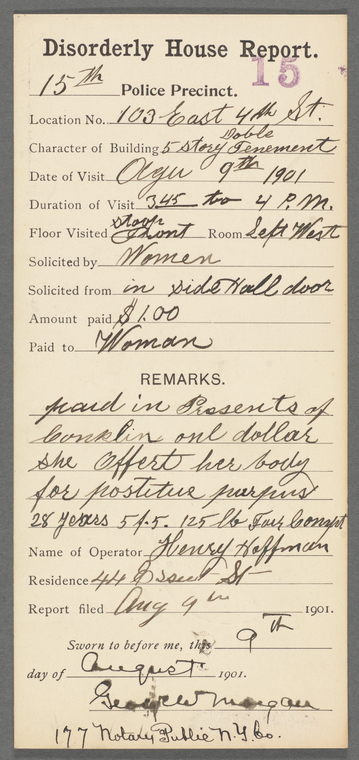 Disorderly House Report.
15
15th Police Precinct.
Location No. 103 East 4th St.
Doble
Character of Building 5 story Tenement
Date of Visit Agu 9th 1901
Duration of Visit 3.45 to 4 P.M.
stoop
Floor Visited Front Room Left West
Solicited by Women
Solicited from in side Hall door
Amount paid $1.00
Paid to Woman
REMARKS.
paid in Pressents of
Conklin onl dollar
she offert her body
for postitue purpus
28 years 5 f. 5. 125 lb Fair Complt
Name of Operator Henry Hoffman
Residence 44 St
Report filed Aug 9th 1901.
Sworn to before me, this 9th
day of August 1901.
George W Morgan
177 Notary Public N.Y. Co.